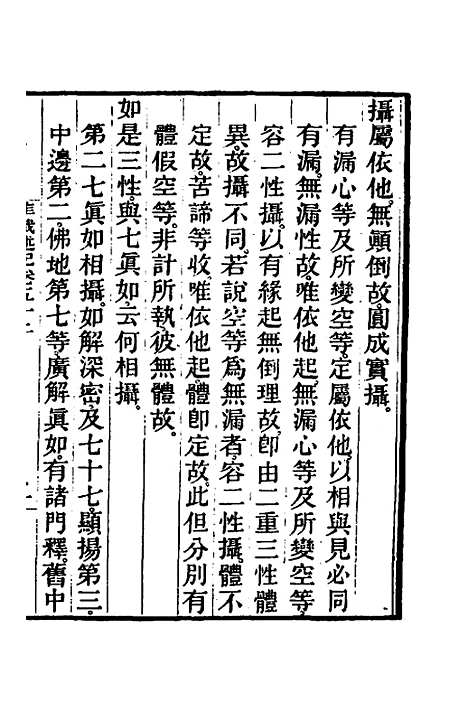 攝屬依他。無顛倒故。圓成實攝。
有漏心等及所變空等。定屬依他。以相與見必同
有漏。無漏性故。唯依他起。無漏心等及所變空等。
容二性攝。以有緣起無倒理故。卽由二重三性體
異。故攝不同。若說空等爲無漏者。容二性攝。體不
定故。苦諦等收唯依他起體卽定故。此但分別有
體假空等。非計所執。彼無體故。
如是三性。與七眞如。云何相攝。
第二七眞如相攝。如解深密。及七十七。顯揚第三。
中邊第二。佛地第七等。廣解眞如。有諸門釋。舊中